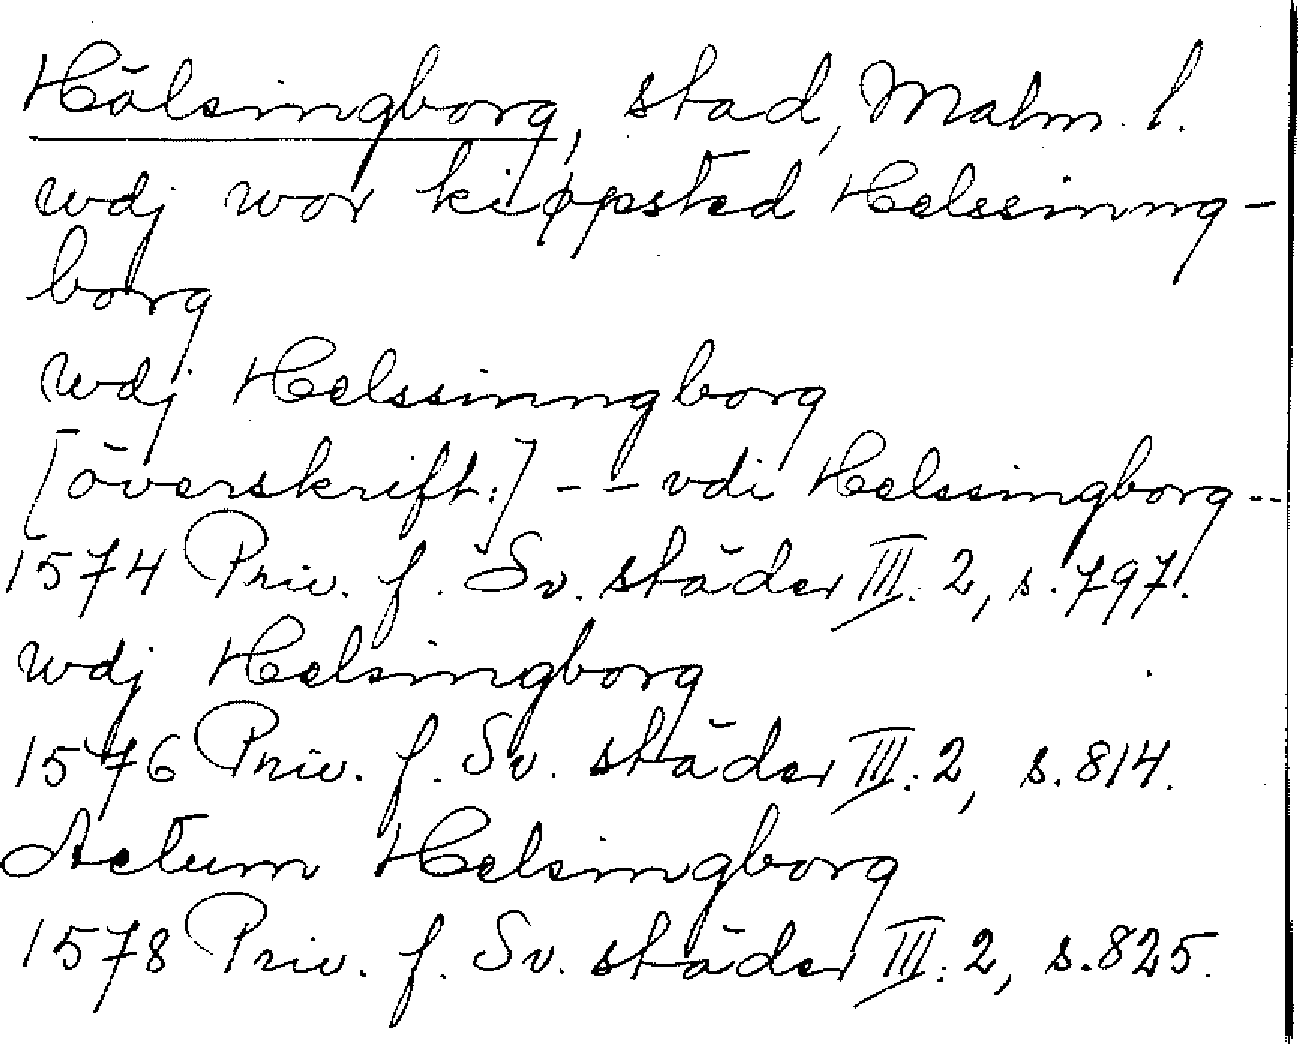 Hälsingborg, stad, Malm. l.
wdj wor kiøpsted Helssinng-
borg
wdj Helssinngborg
[överskrift:] -- vdi Helssingborg --
1574 Priv. f. Sv. städer III: 2, s. 797.
wdj Helsingborg
1576 Priv. f. Sv. städer III: 2, s. 814.
Actum Helsingborg
1578 Priv. f. Sv. städer III: 2, s. 825.